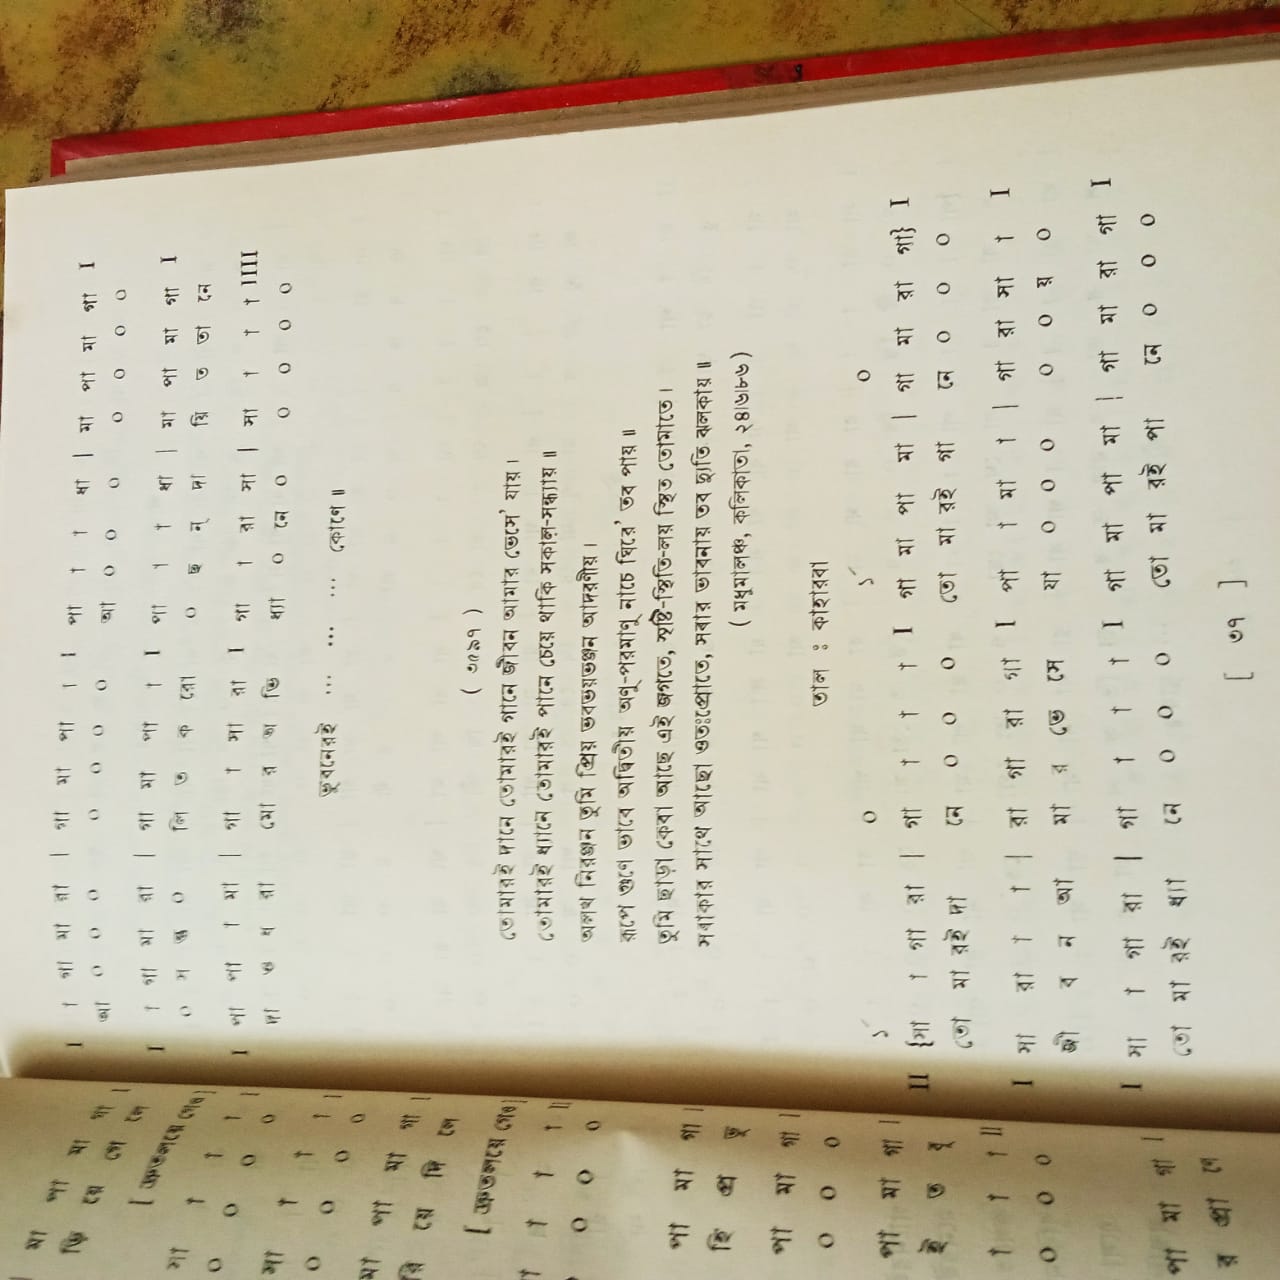 I া গা মা রা | গা মা পা া I পা া া ধা | মা পা মা গা I
আ ০ ০ ০ ০ ০ ০ ০ আ ০ ০ ০ ০ ০ ০ ০
I া গা মা রা | গা মা পা া I পা া া ধা | মা পা মা গা I
০ স ঙ্গ ০ লি ত ক রো ০ ছ ন্ দা য়ি ত তা নে
I পা পা া মা | গা া সা রা I গা া রা সা | সা া া া IIII
দা ও ধ রা মো র অ ভি ধ্যা ০ নে ০ ০ ০ ০ ০
ভুবনেরই ... ... ... কোণে॥
( ৩৫৯৭ )
তোমারই দানে তোমারই গানে জীবন আমার ভেসে' যায়।
তোমারই ধ্যানে তোমারই পানে চেয়ে থাকি সকাল-সন্ধ্যায়॥
অলখ নিরঞ্জন তুমি প্রিয় ভবভয়ভঞ্জন আদরণীয়।
রূপে গুণে ভাবে অদ্বিতীয় অণু-পরমাণু নাচে ঘিরে' তব পায়॥
তুমি ছাড়া কেবা আছে এই জগতে, সৃষ্টি-স্থিতি-লয় স্থিত তোমাতে।
সবাকার সাথে আছো ওতঃপ্রোতে, সবার ভাবনায় তব দ্যুতি ঝলকায়॥
( মধুমালঞ্চ, কলিকাতা, ২৪।৬।৮৬)
তাল : কাহারবা
১´ ০ ১´ ০
II {সা া গা রা | গা া া া I গা মা পা মা | গা মা রা গা} I
তো মা রই দা নে ০ ০ ০ তো মা রই গা নে ০ ০ ০
I সা রা া া | রা গা রা গা I পা া মা া | গা রা সা া I
জী ব ন আ মা র ভে সে যা ০ ০ ০ ০ ০ য় ০
I সা া গা রা | গা া া া I গা মা পা মা | গা মা রা গা I
তো মা রই ধ্যা নে ০ ০ ০ তো মা রই পা নে ০ ০ ০
[ ৩৭ ]
মা পা মা গা |
ভি য়ে গে লে
[ দ্রুতলয়ে গেঃ]
সা া া া |
০ ০ ০ ০
সা া া া |
০ ০ ০ ০
মা পা মা গা |
রি য়ে দি লে
[ দ্রুতলয়ে গেঃ]
া া া া ||
০ ০ ০
পা মা গা |
হি প্র ভু
পা মা গা |
০ ০ ০
পা মা গা |
ই ত বু
া া া ||
০ ০ ০
পা মা গা |
র প্রা ণে